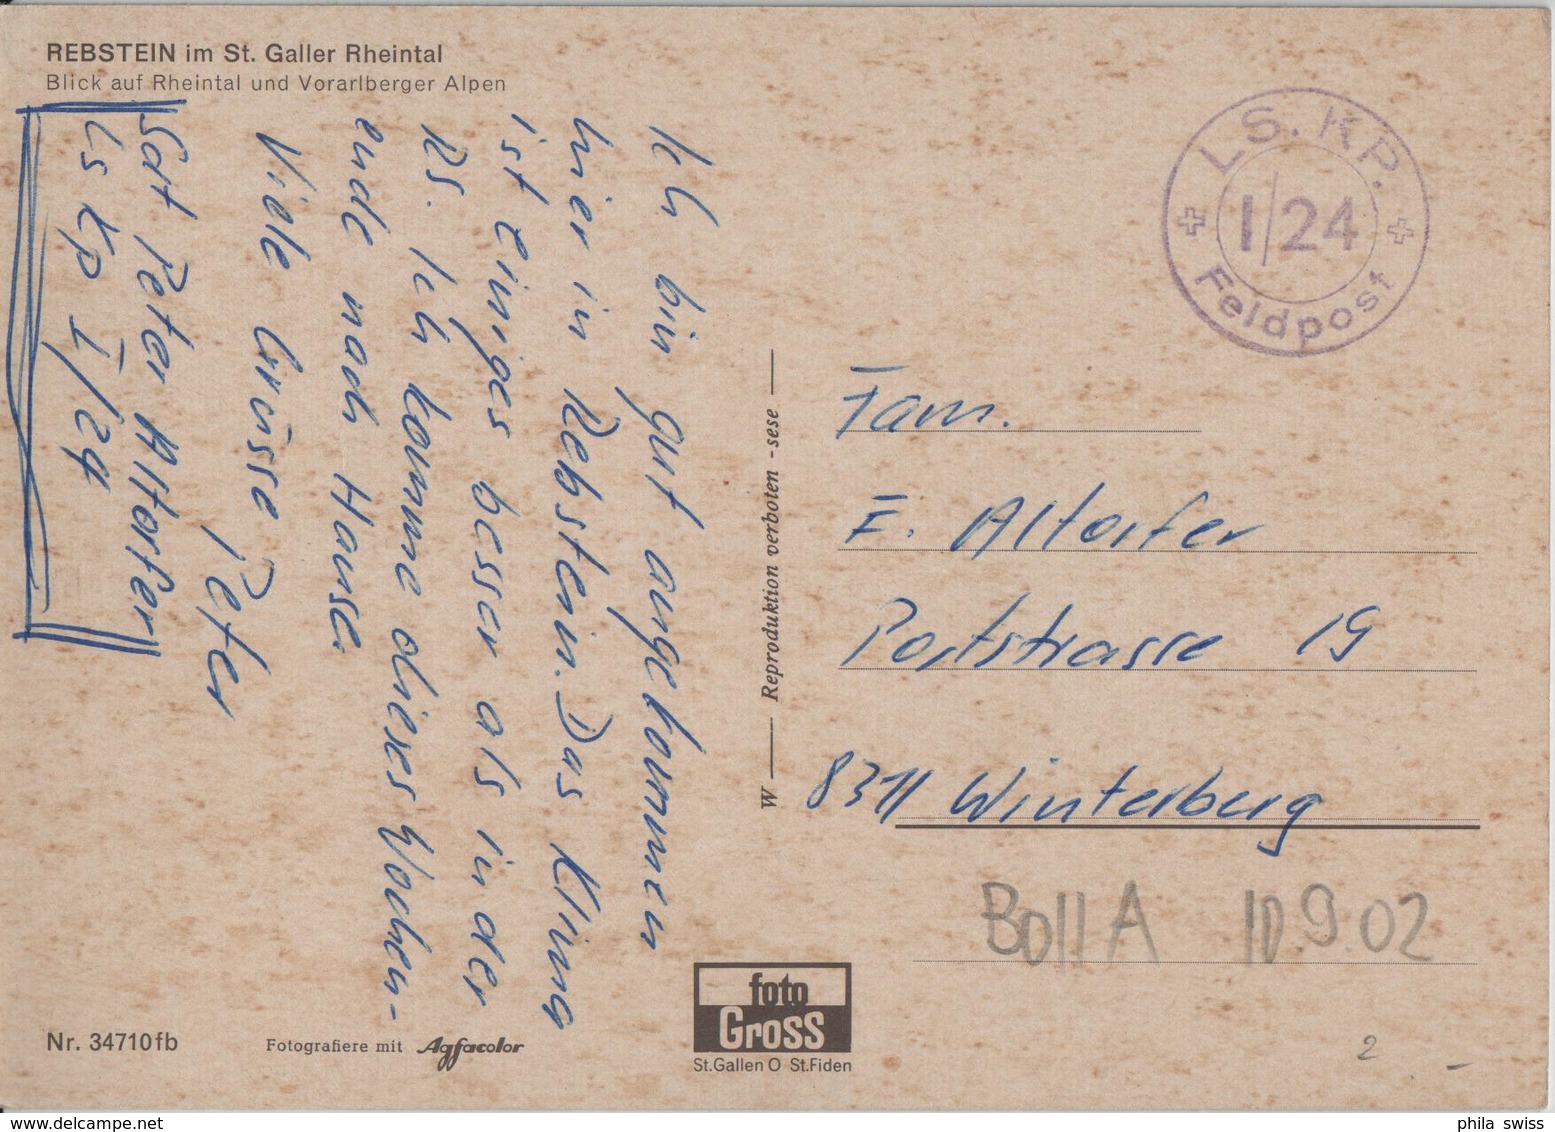 REBSTEIN im St. Galler Rheintal
Blick auf Rheintal und Vorarlberger Alpen
Ich bin gut angekommen
hier in Rebstein. Das Klima
ist einiges besser als in der
RS. Ich komme dieses Wochen-
ende nach Hause.
Viele Grüsse Peter
Sdt Peter Altorfer
Ls Kp I/24
LS. KP.
I/24
Feldpost
W Reproduktion verboten - sese
Fam.
E. Altorfer
Poststrasse 19
8311 Winterberg
10.9.02
2
foto
Gross
St.Gallen O St.Fiden
Nr. 34710fb
Fotografiere mit Agfacolor
phila swiss